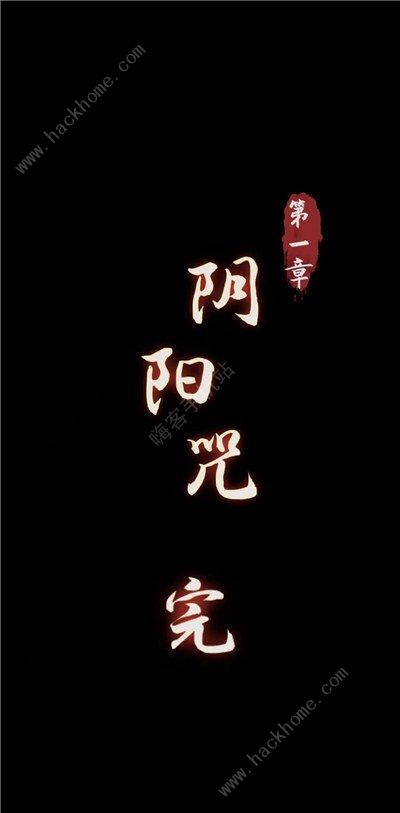 www.hackhome.com
第一章
阴阳咒
完
嗨客手机站
www.hackhome.com